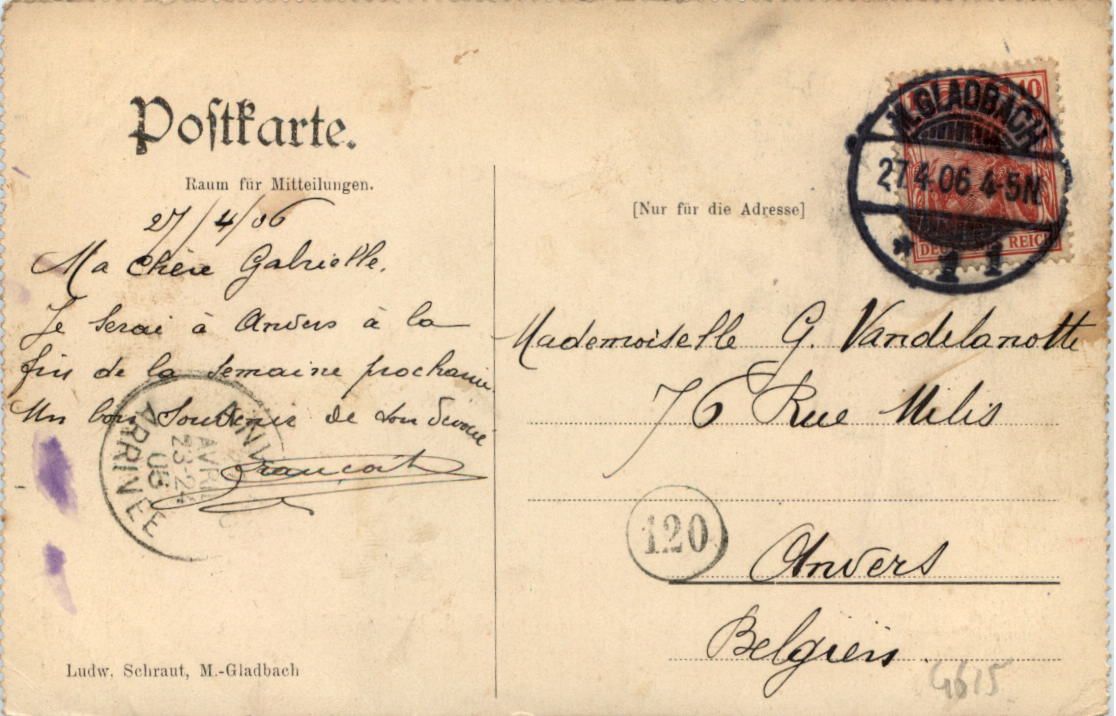 Postkarte.
Raum für Mitteilungen.
[Nur für die Adresse]
10
M.GLADBACH
27.4.06 4-5N
* 1 1
DEUTSCHES REICH
27/4/06
Ma chère Gabrielle,
Je serai à Anvers à la
fin de la semaine prochaine
Un bon souvenir de ton
François
ANVERS
AVRIL
23-24
06
ARRIVEE
Mademoiselle G. Vandelanotte
76 Rue Milis
120
Anvers
Belgien
Ludw. Schraut, M.-Gladbach
4615